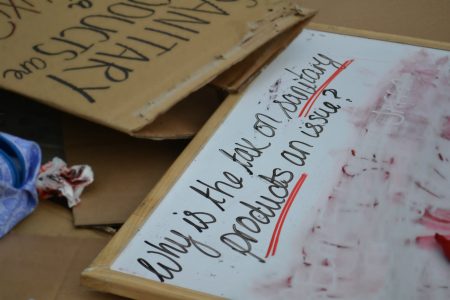 SANITARY
PRODUCTS are
Why is the tax on sanitary
products an issue?